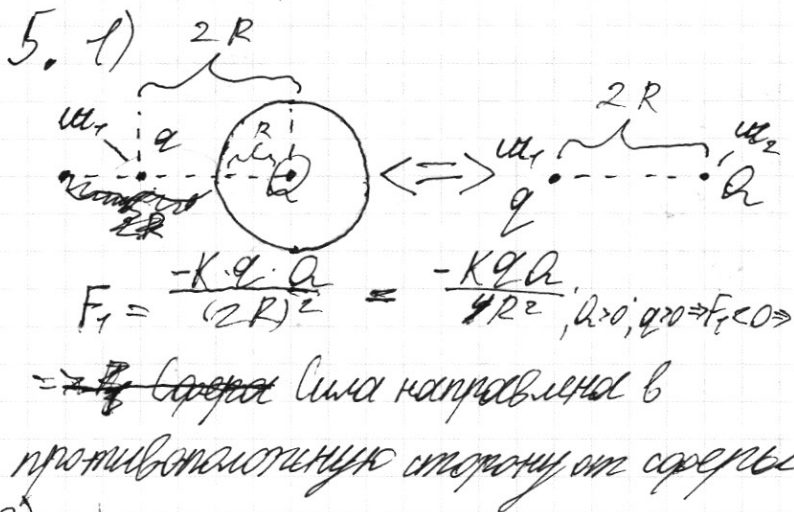 5. 1)
2R
2R
m₁ q R Q <=> m₁ q m₂ Q
2R
F₁ = -K·q·Q/(2R)² = -KqQ/4R² ; Q>0; q>0 ⇒ F₁<0 ⇒
=> Сила направлена в
противоположную сторону от сферы